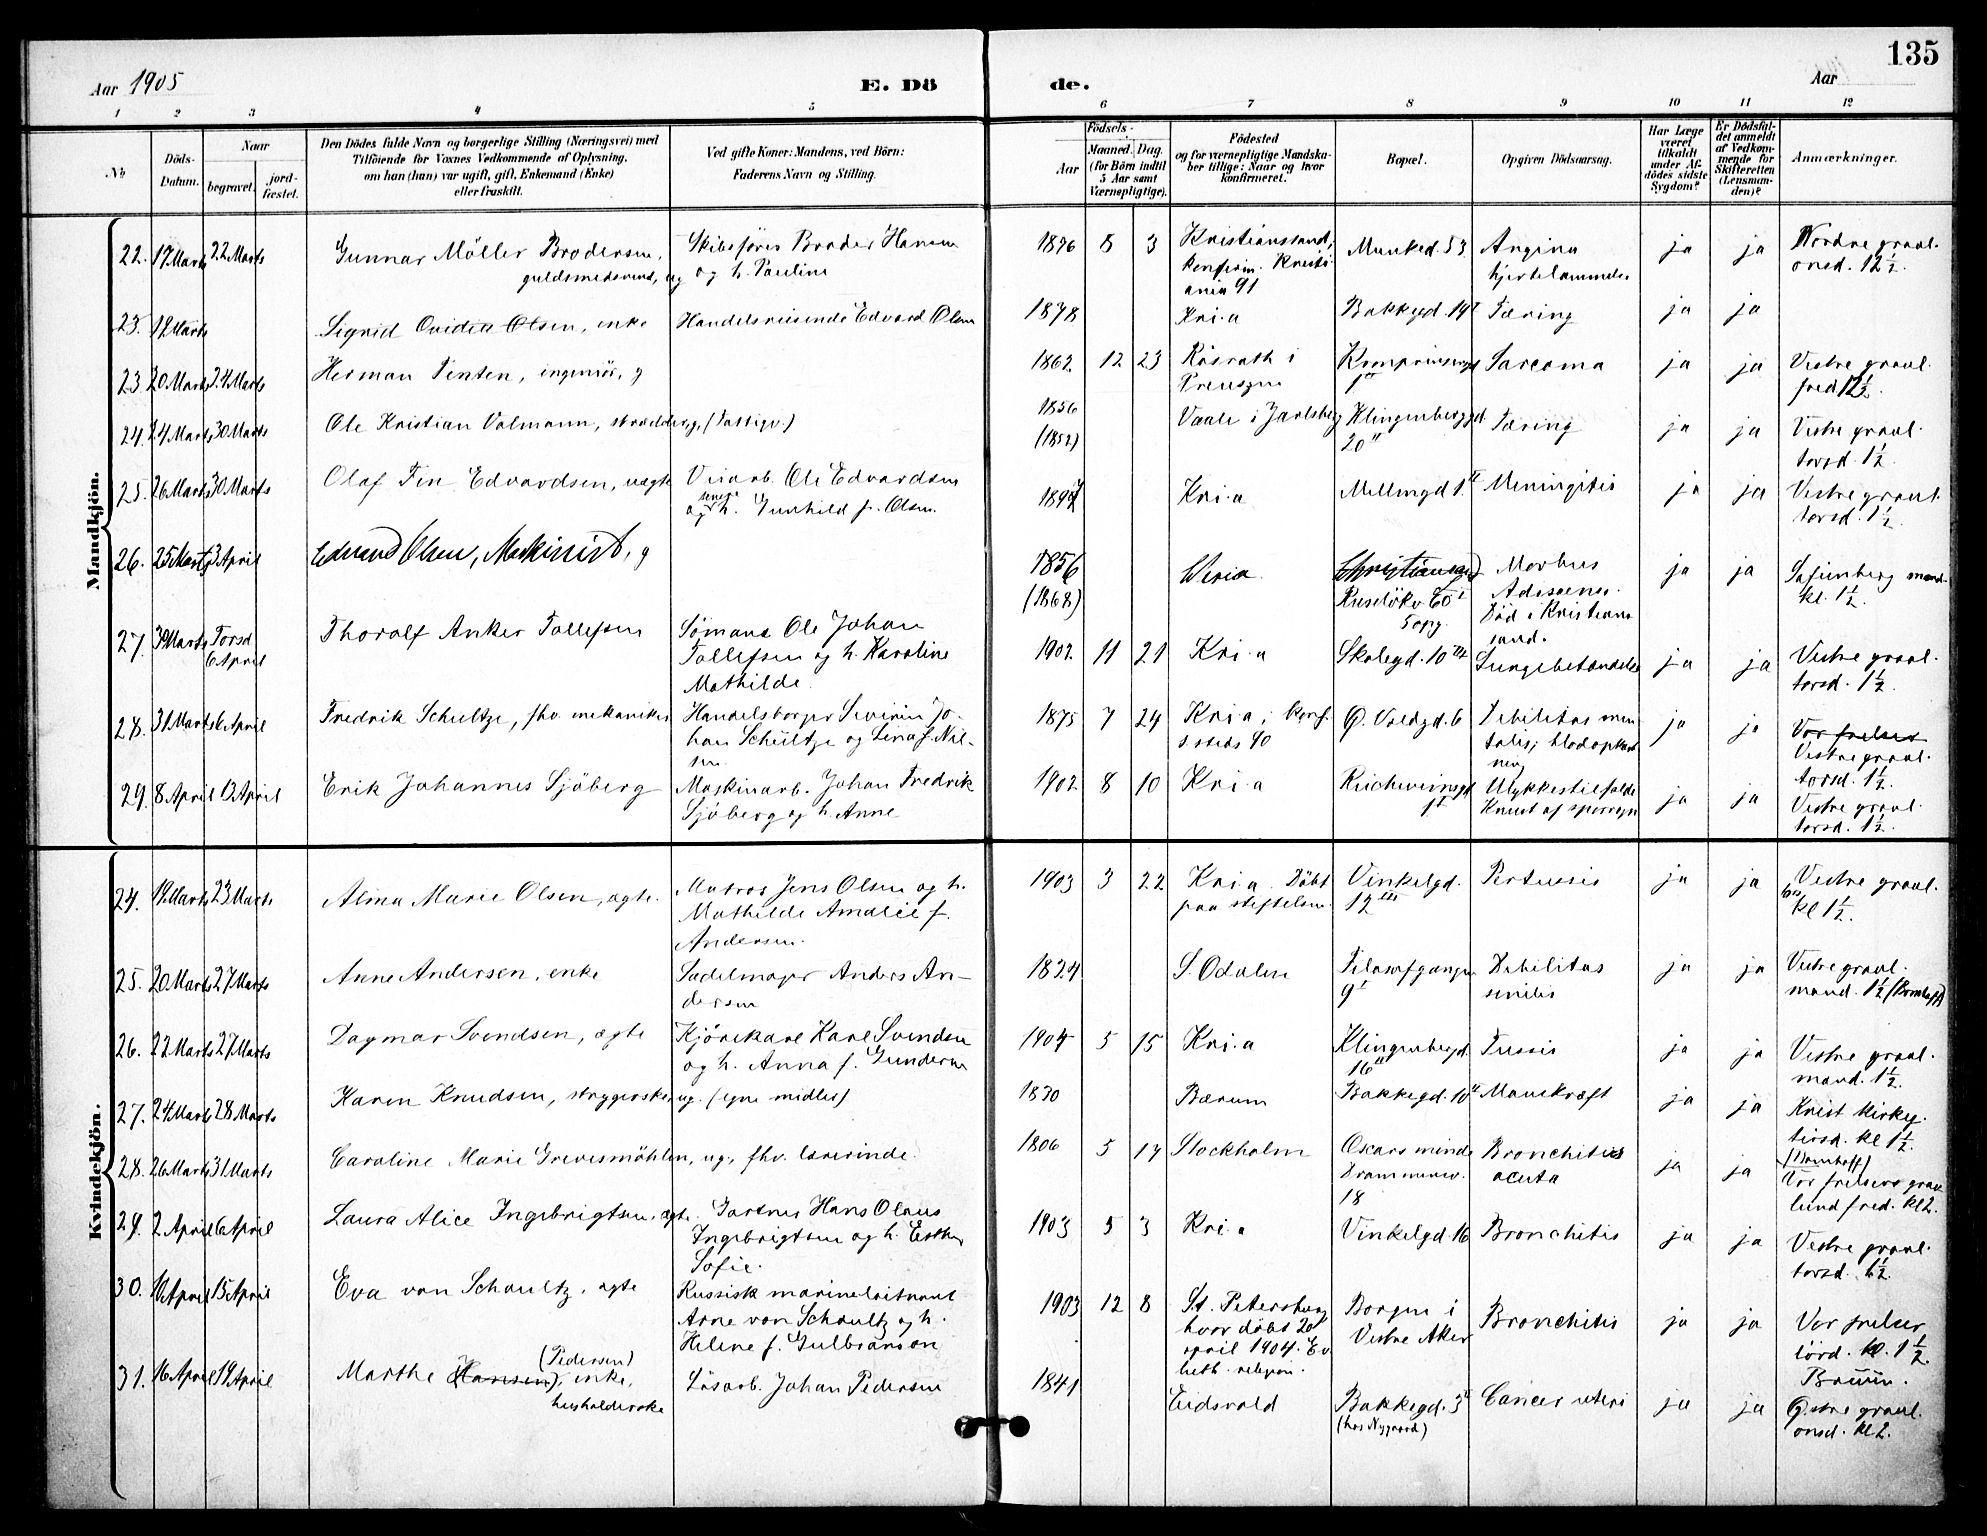 135
Aar 1905
E. Dö
de.
Aar
1 2 3 4 5 6 7 8 9 10 11 12
No
Döds-
Datum.
Naar
begravet.
jord-
fæstet.
Den Dödes fulde Navn og borgerlige Stilling (Næringsvei) med
Tilföiende for Voxnes Vedkommende af Oplysning,
om han (hun) var ugift, gift, Enkemand (Enke)
eller fraskilt.
Ved gifte Koner: Mandens, ved Börn:
Faderens Navn og Stilling.
Födsels-
Aar
Maaned. Dag.
(for Börn indtil
5 Aar samt
Værnepligtige).
Födested
og for værnepligtige Mandska-
ber tillige: Naar og hvor
konfirmeret.
Bopæl.
Opgiven Dödsaarsag.
Har Læge
været
tilkaldt
under Af-
dödes sidste
Sygdom?
Er Dödsfal-
det anmeldt
af Vedkom-
mende for
Skifteretten
(Lensman-
den)?
Anmærkninger.
Mandkjön.
22. 17 Marts 22 Marts
Gunnar Möller Brodersen,
guldsmedsvend, ug
Skibsfører Broder Hansen
og h. Pauline
1876 8 3
Kristianssand,
konfirm. Kristi-
ania 91
Munked. 53
Angina
hjertelammelse
ja ja
Nordre gravl.
onsd. 12 1/2.
23. 18 Marts
Sigrid Ovidia Olsen, enke
Handelsreisende Edvard Olsen
1878
Kri.a
Bakkegd. 14 I
Tæring
ja ja
23 20 Marts 24 Marts
Herman Tenten, ingeniör, g
1862 12 23
Rösrath i
Preuszen
Kronprinsensgd
1 II
Sarcoma
ja ja
Vestre gravl.
fred 12 1/2.
24. 24 Marts 30 Marts
Ole Kristian Valmann, skrædder, g, (Fattigv.)
1856
(1852)
Vaale i Jarlsberg
Klingenberggd
20 II
Tæring
ja ja
Vestre gravl.
torsd. 1 1/2
25. 26 Marts 30 Marts
Olaf Fin Edvardsen, uægte
Veiarb. Ole Edvardsen
senere
og h. Gunhild f. Olsen.
Kri.a
Mellemgd 1. II
Meningitis
ja ja
Vestre gravl.
torsd. 1 1/2.
26. 25 Marts 3 April
Edvard Olsen, Maskinist, g
1856
(1868)
Christiansand
Ruselökv 60 I
5 opg.
Morbus
Adisoenes.
Död i Kristians
sand.
ja ja
mand.
kl. 1 1/2.
27. 30 Marts Torsd
6 April
Thoralf Anker Tollefsen
Sömand Ole Johan
Tollefsen og h. Karoline
Mathilde.
1902 11 21
Kri.a
Skolegd. 10
Lungebetændelse
ja ja
Vestre gravl.
torsd. 1 1/2.
28. 31 Marts 6 April
Fredrik Schultze, fhv. mekaniker
Handelsborger Severin Jo-
han Schultze og Lina f. Nil-
sen
1875 7 24
Kri a, konf.
s. steds 90
Ø. Voldgd. 6
Debilitas men
talis; blodopkast
ning
ja ja
Vor frelser
Vestre gravl.
torsd. 1 1/2.
29. 8 April 13 April
Erik Johannes Sjöberg
Maskinarb. Johan Fredrik
Sjöberg og h. Anne
1902 8 10
Kri.a
Reichweinsgd
1 I
Ulykkestilfælde
Knust af sporvgn
ja ja
Vestre gravl.
torsd. 1 1/2.
Kvindekjön.
24. 19 Marts 23 Marts
Alma Marie Olsen, ægte.
Matros Jens Olsen og h.
Mathilde Amalie f.
Andersen.
1903 3 22
Kri a. Döbt
paa stiftelsen.
Vinkelgd.
12 III
Pertussis
ja ja
Vestre gravl.
kl 1 1/2.
25. 20 Marts 27 Marts
Anne Andersen, enke
Sadelmager Anders An-
dersen
1824
S. Odalen
Filosofgangen
9 I
Debilitas
senilis
ja ja
Vestre gravl.
mand. 1 1/2 (Bomhoff)
26. 22 Marts 27 Marts
Dagmar Svendsen, ægte
Kjörekarl Karl Svendsen
og h. Anna f. Gundersen
1904 5 15
Kri.a
Klingenbergd.
16 II
Tussis
ja ja
Vestre gravl.
mand. 1 1/2.
27. 24 Marts 28 Marts
Karen Knudsen, strygerske, ug. (egne midler)
1830
Bærum
Bakkegd. 10 II
Mavekræft
ja ja
Krist kirkeg.
tirsd. kl 1 1/2.
28. 26 Marts 31 Marts
Caroline Marie Grevesmöhlen, ug., fhv. lærerinde.
1806 5 17
Stockholm
Oscars minde
Drammensv.
18
Bronchitis
acuta
ja ja
(Bomhoff)
Vor frelsers grav
lund fred. kl 2.
29. 2 April 6 April
Laura Alice Ingebrigtsen, ægte.
Gartner Hans Olaus
Ingebrigtsen og h. Esther
Sofie.
1903 5 3
Kri.a
Vinkelgd. 16
Bronchitis
ja ja
Vestre gravl.
torsd. 1 1/2.
30. 10 April 15 April
Eva von Schoultz, ægte
Russisk marinelöitnant
Arne von Schoultz og h.
Helene f. Gulbranson
1903 12 8
St. Petersburg
hvor döbt 20
april 1904. Ev.
luth. religion.
Borgen i
Vestre Aker
Bronchitis
ja ja
Vor frelser
lörd. kl. 1 1/2.
Bruun.
31. 16 April 19 April
Marthe (Hansen), enke,
(Pedersen)
husholderske
Lösarb. Johan Pedersen
1841
Eidsvold
Bakkegd. 3 II
(hos Nygaard)
Cancer uteri
ja ja
Østre gravl.
onsd. kl 2.